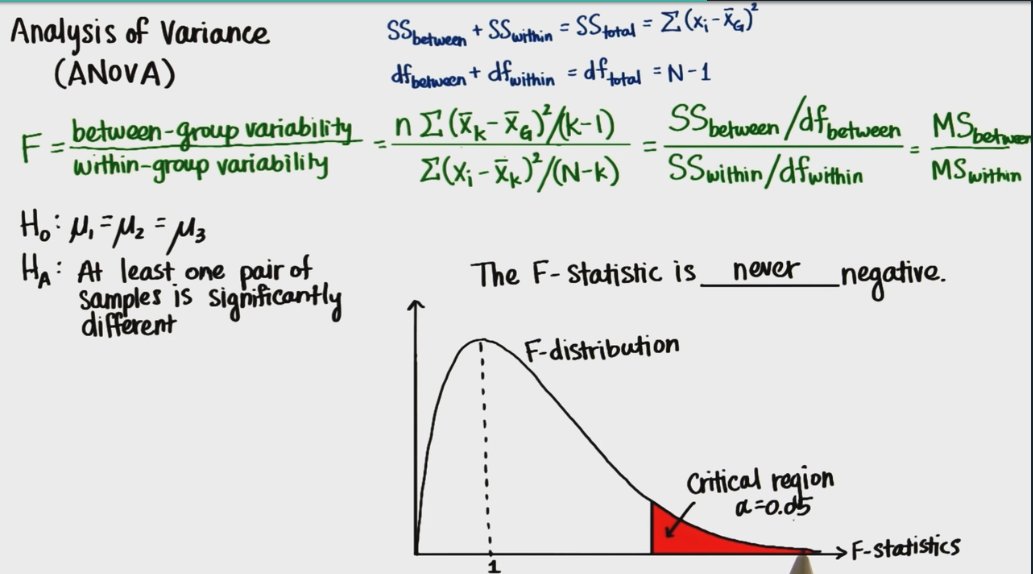 Analysis of Variance
(ANOVA)
SS_between + SS_within = SS_total = Σ(x_i - x̄_G)²
df_between + df_within = df_total = N-1
F = between-group variability / within-group variability = n Σ(x̄_k - x̄_G)²/(k-1) / Σ(x_i - x̄_k)²/(N-k) = SS_between/df_between / SS_within/df_within = MS_between / MS_within
H₀: μ₁ = μ₂ = μ₃
H_A: At least one pair of
samples is significantly
different
The F-statistic is never negative.
F-distribution
Critical region
α=0.05
F-statistics
1